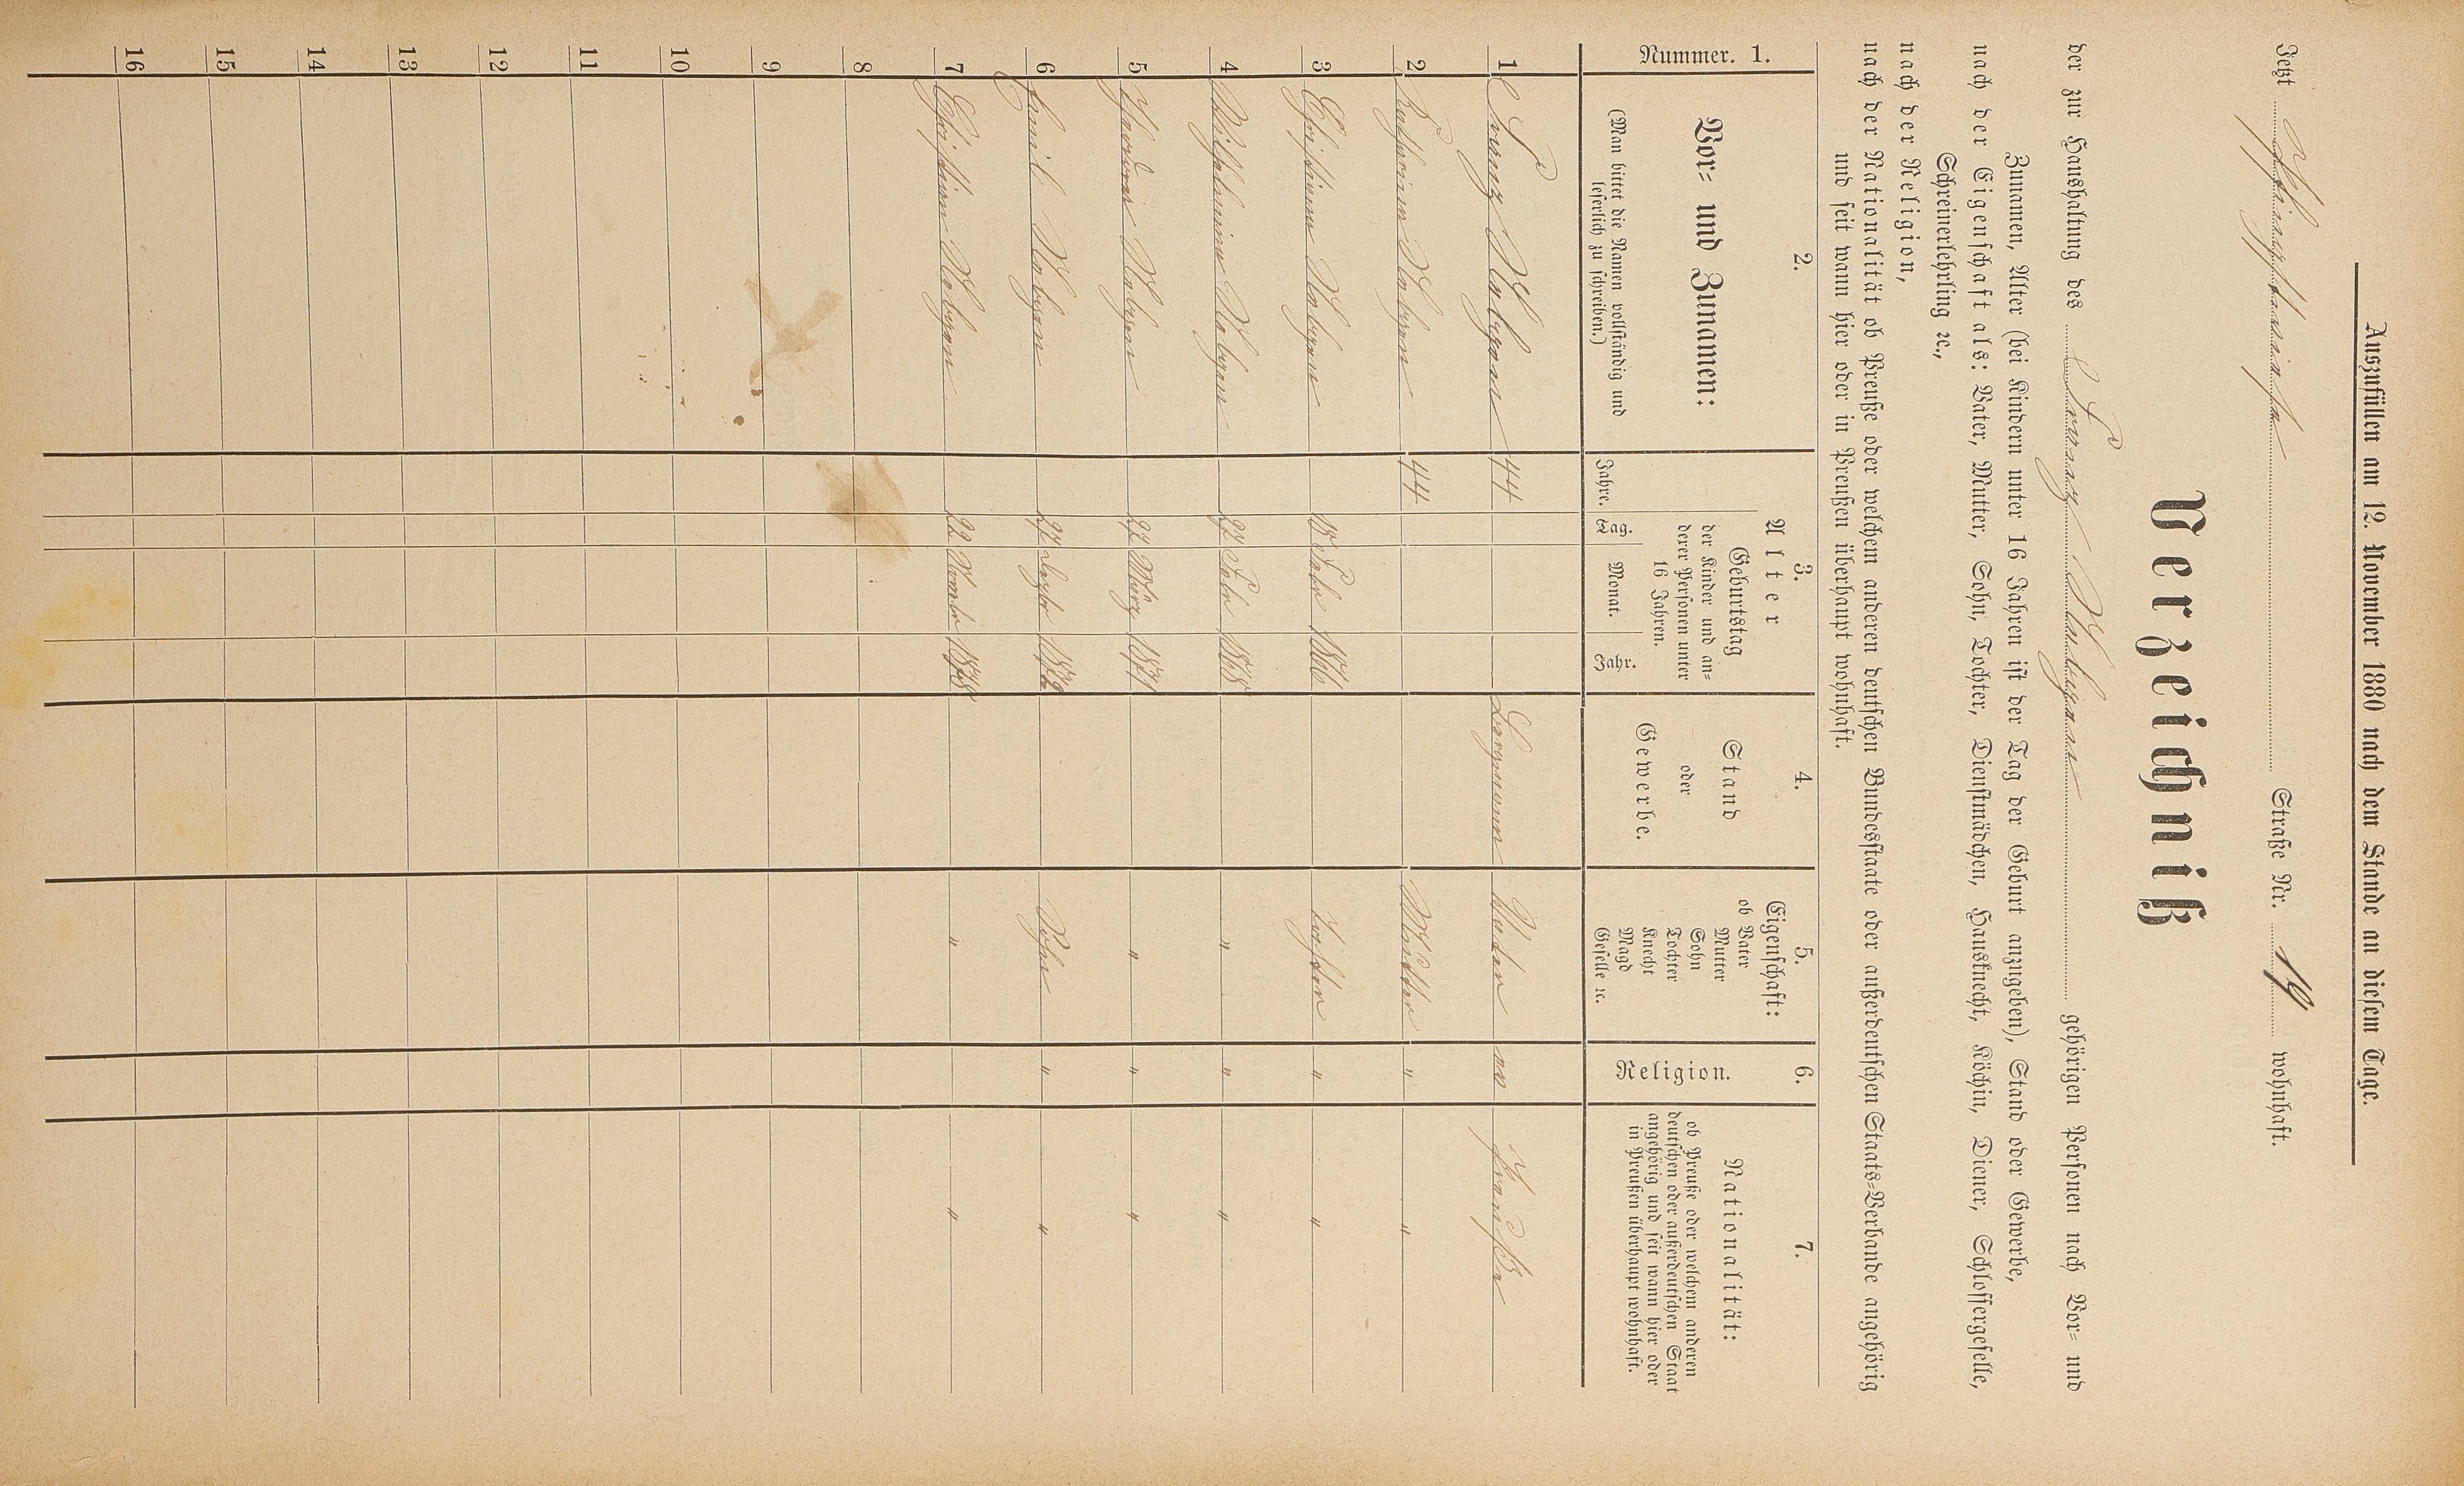 Auszufüllen am 12. November 1880 nach dem Stande an diesem Tage.
Jetzt Straße Nr. 19 wohnhaft.
Verzeichniß
der zur Haushaltung des Franz gehörigen Personen nach Vor= und
Zunamen, Alter (bei Kindern unter 16 Jahren ist der Tag der Geburt anzugeben), Stand oder Gewerbe,
nach der Eigenschaft als: Vater, Mutter, Sohn, Tochter, Dienstmädchen, Hausknecht, Köchin, Diener, Schlossergeselle,
Schreinerlehrling ꝛc.,
nach der Religion,
nach der Nationalität ob Preuße oder welchem anderen deutschen Bundesstaate oder außerdeutschen Staats=Verbande angehörig
und seit wann hier oder in Preußen überhaupt wohnhaft.
Nummer. 1.
2.
Vor= und Zunamen:
(Man bittet die Namen vollständig und
leserlich zu schreiben.)
3.
Alter
Jahre.
Geburtstag
der Kinder und an=
derer Personen unter
16 Jahren.
Tag. Monat. Jahr.
4.
Stand
oder
Gewerbe.
5.
Eigenschaft:
ob Vater
Mutter
Sohn
Tochter
Knecht
Magd
Geselle ꝛc.
6.
Religion.
7.
Nationalität:
ob Preuße oder welchem anderen
deutschen oder außerdeutschen Staat
angehörig und seit wann hier oder
in Preußen überhaupt wohnhaft.
1 Franz 44 Bergmann Vater ev Preuße
2 44 Mutter " "
3 Christiane 18 Febr 1866 Tochter " "
4 Wilhelmine 22 Febr 1868 " " "
5 27 März 1871 " " "
6 Emil 27 Sohn " "
7 Christian 22 Novembr 1878 " "
8
9
10
11
12
13
14
15
16